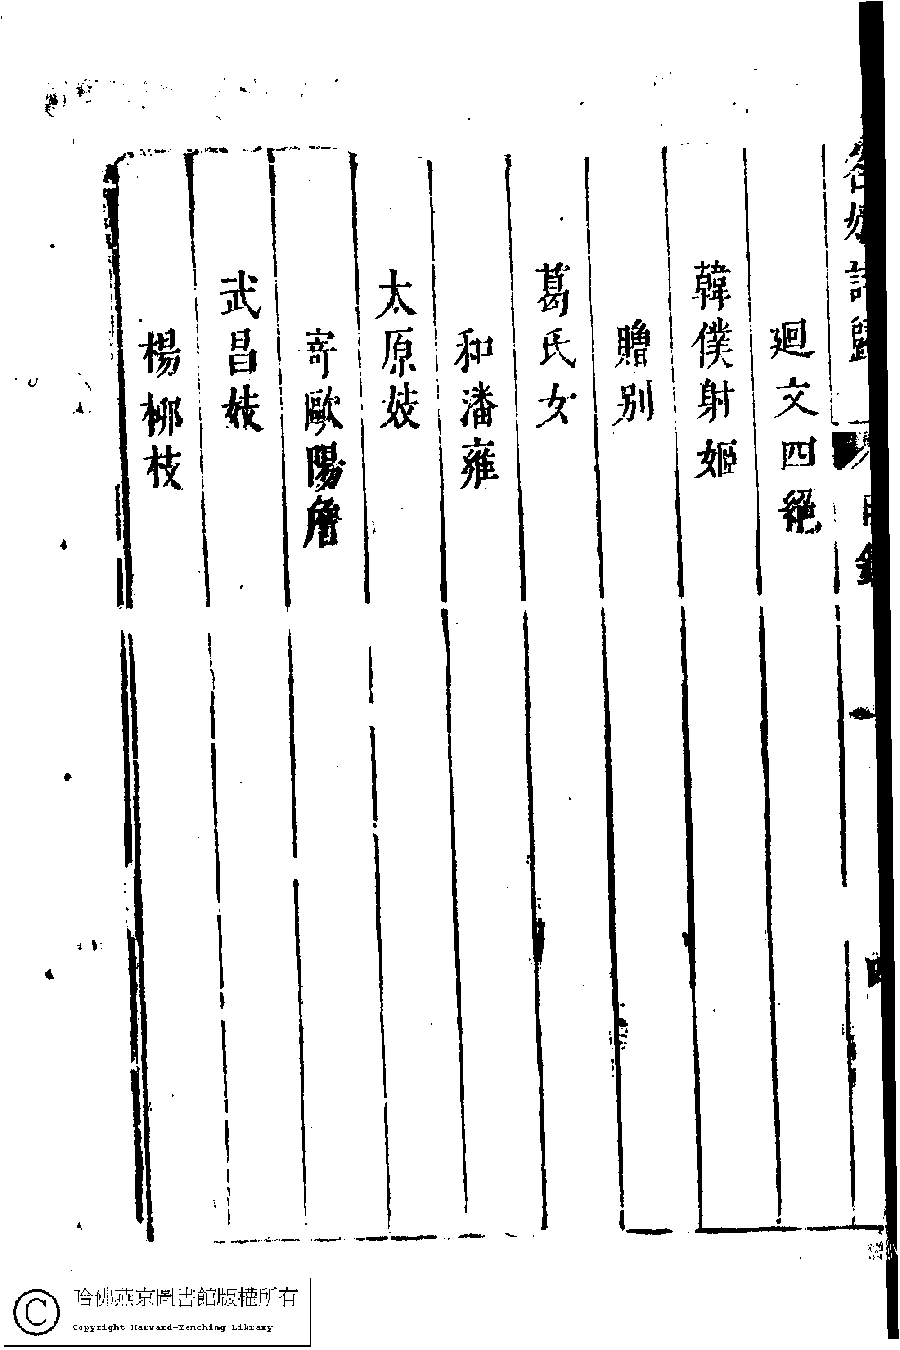 名媛詩歸
目錄
四
廻文四絕
韓僕射姬
贈别
葛氏女
和潘雍
太原妓
寄歐陽詹
武昌妓
楊柳枝
哈佛燕京圖書館版權所有
Copyright Harvard-Yenching Library